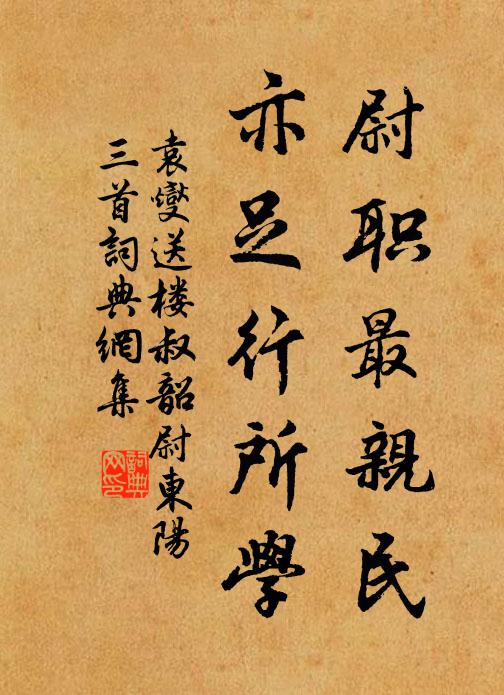 尉职最親民
亦足行所學
袁燮送楼叔韶尉東陽
三首詞典網集
詞典网印